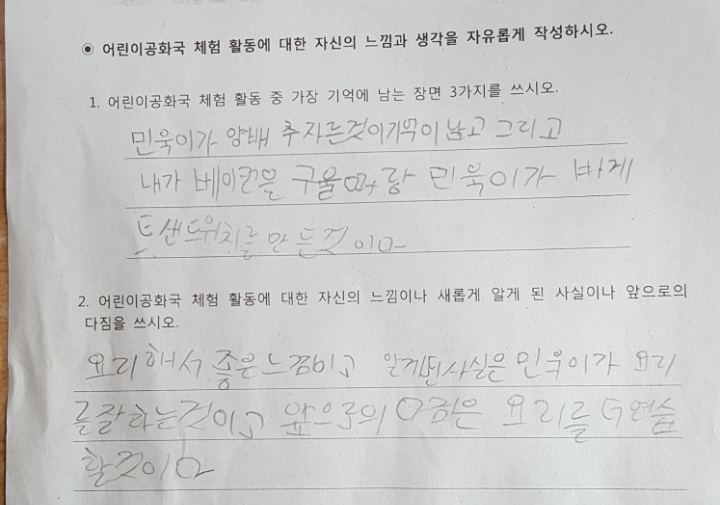 ◉ 어린이공화국 체험 활동에 대한 자신의 느낌과 생각을 자유롭게 작성하시오.
1. 어린이공화국 체험 활동 중 가장 기억에 남는 장면 3가지를 쓰시오.
민욱이가 양배 추자른것이기억이 남고 그리고
내가 베이컨을 구울때랑 민욱이가 바게
트샌드위치를 만든것 이다
2. 어린이공화국 체험 활동에 대한 자신의 느낌이나 새롭게 알게 된 사실이나 앞으로의
다짐을 쓰시오.
요리해서 좋은느낌이고 알게된사실은 민욱이가 요리
를잘하는것이고 앞으로의 다짐은 요리를 더연습
할것이다